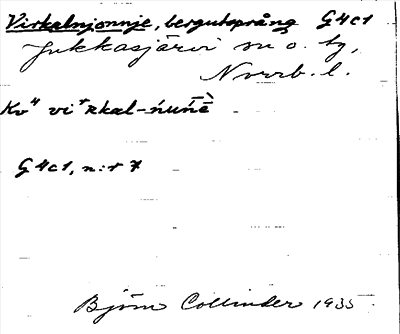 Virkalnjonnje, bergutsprång G4c1
Jukkasjärvi sn o. tg,
Norrb. l.
Kv" vi'ʀkal-ńuńḕ
G4c1, n:r 7
Björn Collinder 1935